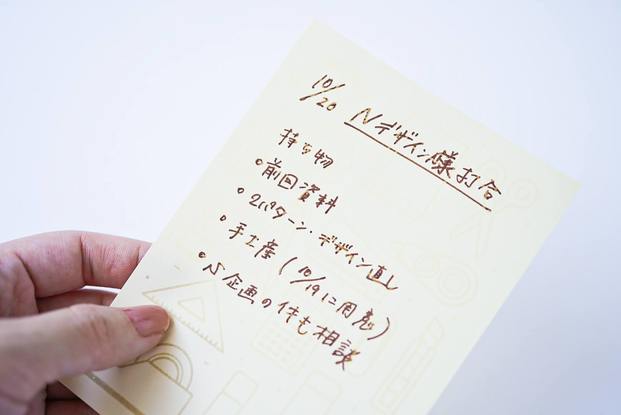 10/20 Nデザイン様打合
持ち物
・前回資料
・2パターン・デザイン直し
・手土産(10/19に用意)
・S企画の件も相談